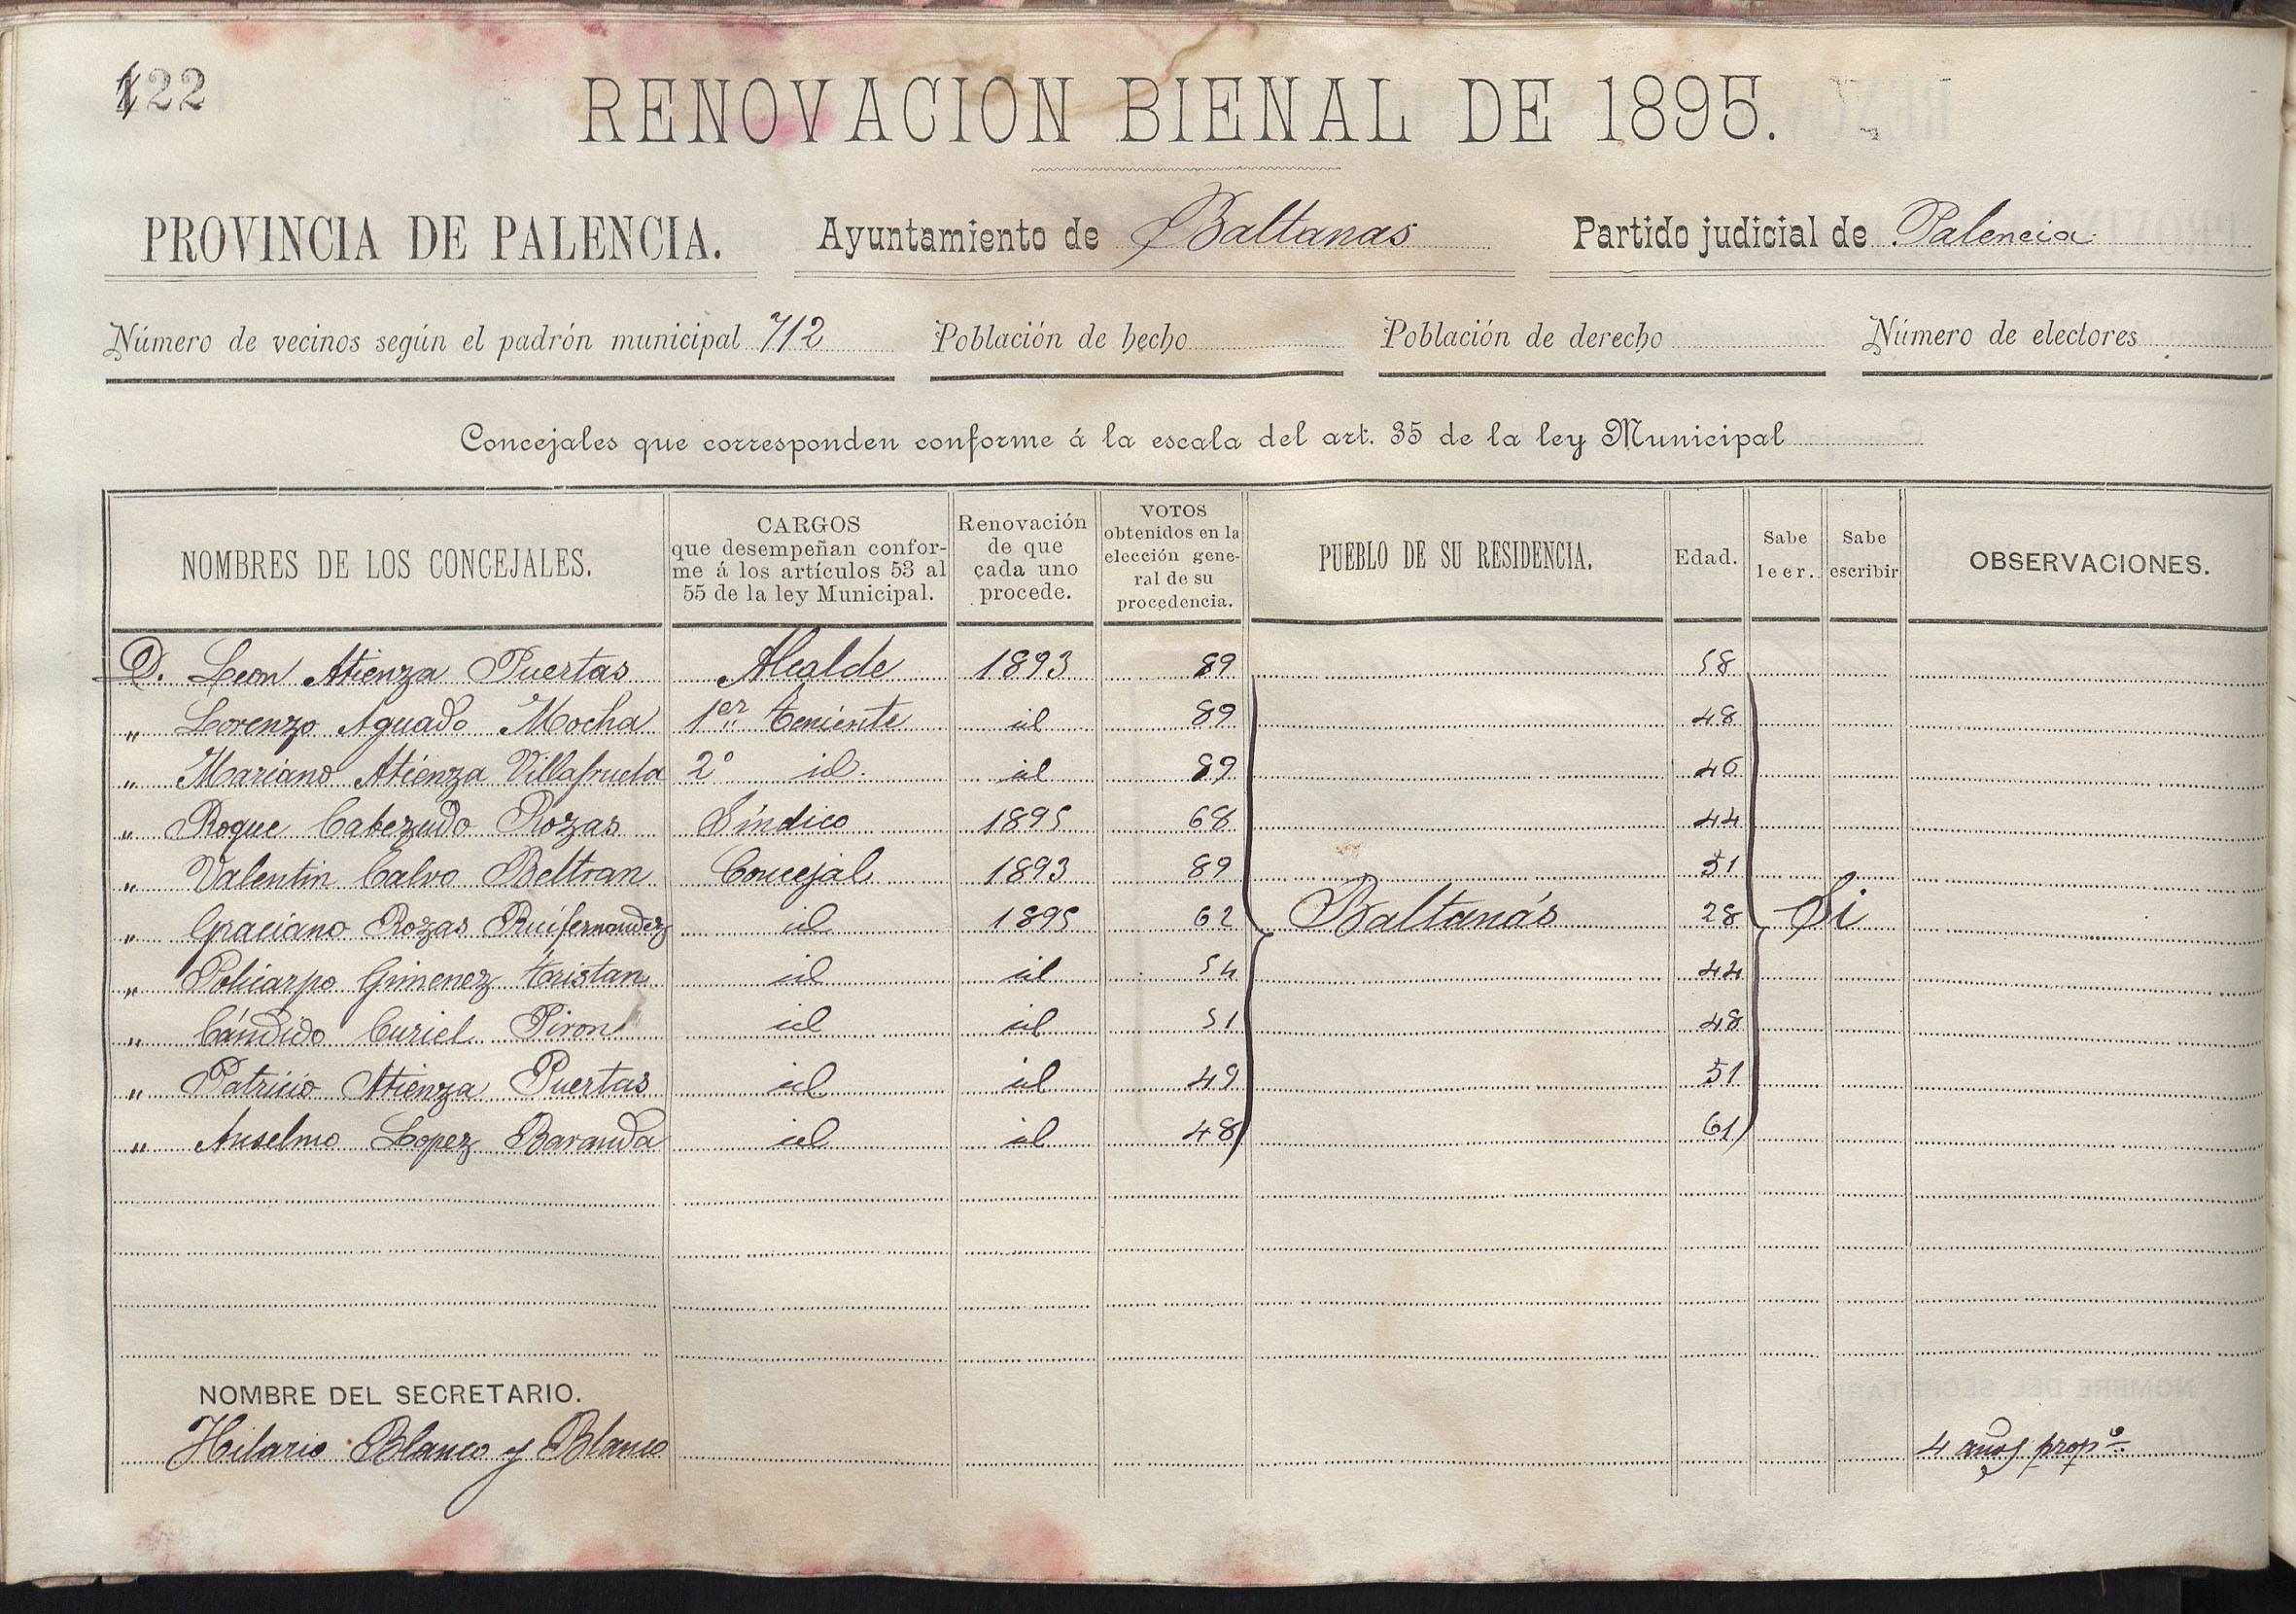 122
RENOVACION BIENAL DE 1895.
PROVINCIA DE PALENCIA. Ayuntamiento de Baltanas Partido judicial de Palencia
Número de vecinos según el padrón municipal 712 Población de hecho Población de derecho Número de electores
Concejales que corresponden conforme á la escala del art. 35 de la ley Municipal
NOMBRES DE LOS CONCEJALES. CARGOS que desempeñan conforme á los artículos 53 al 55 de la ley Municipal. Renovación de que cada uno procede. VOTOS obtenidos en la elección general de su procedencia. PUEBLO DE SU RESIDENCIA. Edad. Sabe leer. Sabe escribir OBSERVACIONES.
D. Leon Atienza Puertas Alcalde 1893 89 58
„ Lorenzo Aguado Mocha 1er Teniente id 89 48
„ Mariano Atienza Villafruela 2º id. id 89 46
„ Roque Cabezudo Rozas Síndico 1895 68 44
„ Valentin Calvo Beltran Concejal 1893 89 51
„ Graciano Rozas Ruifernandez id 1895 62 Baltanás 28 Si
„ Policarpo Gimenez Tristan id id 54 44
„ Cándido Curiel Piron id id 51 48
„ Patricio Atienza Puertas id id 49 51
„ Anselmo Lopez Baranda id id 48 61
NOMBRE DEL SECRETARIO.
Hilario Blanco y Blanco 4 años propº